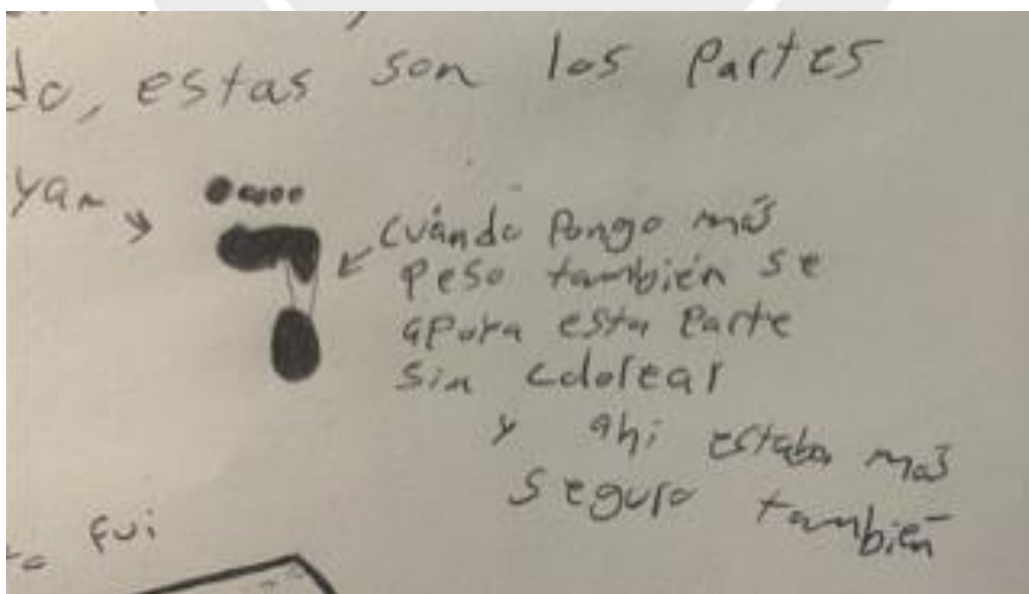 do, estas son las Partes
yan
cuándo Pongo más
peso también se
apoya esta Parte
sin colorear
y ahi estaba más
seguro también
fui